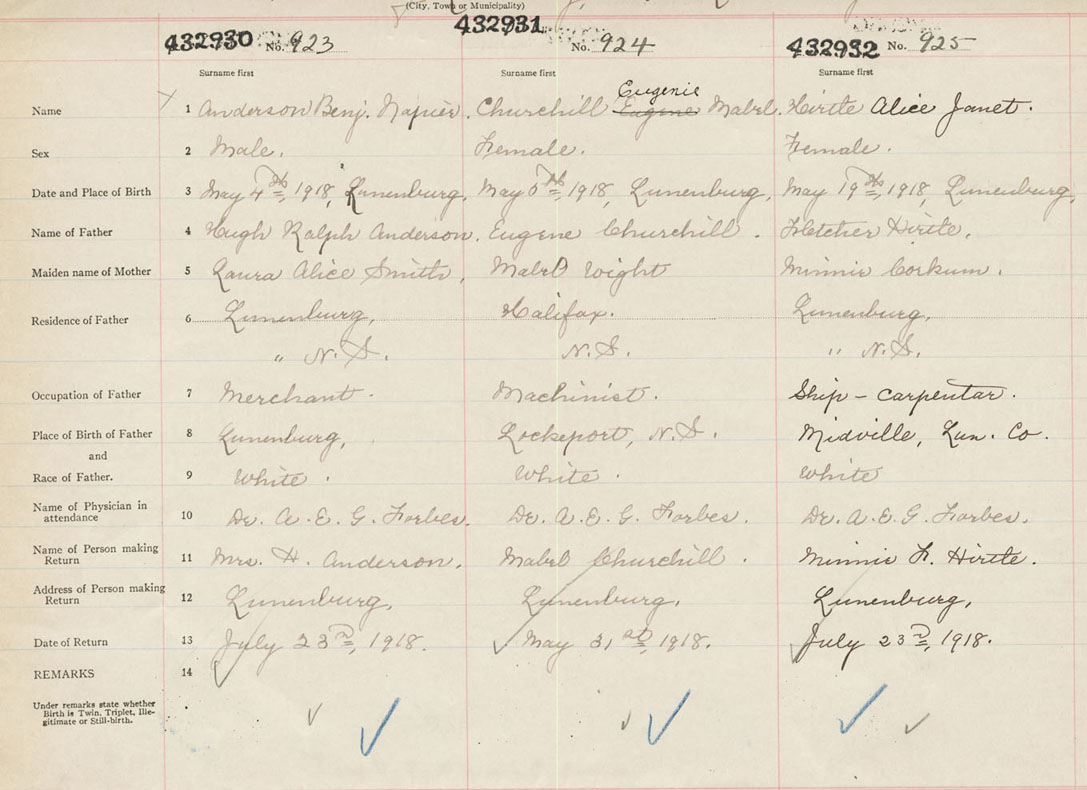 (City, Town or Municipality)
432930 No. 923
432931 No. 924
432932 No. 925
Surname first Surname first Surname first
Name 1 Anderson Benj. Napier. Churchill Eugene Eugenie Mabel. Hirtle Alice Janet.
Sex 2 Male. Female. Female.
Date and Place of Birth 3 May 4th, 1918, Lunenburg. May 6th, 1918, Lunenburg, May 19th, 1918, Lunenburg,
Name of Father 4 Hugh Ralph Anderson. Eugene Churchill. Fletcher Hirtle.
Maiden name of Mother 5 Laura Alice Smith, Mabel Wight Minnie Corkum.
Residence of Father 6 Lunenburg, Halifax. Lunenburg,
" N.S. N.S. " N.S.
Occupation of Father 7 Merchant. Machinist. Ship - carpentar.
Place of Birth of Father 8 Lunenburg, Lockeport, N.S. Midville, Lun. Co.
and
Race of Father. 9 White. White. White
Name of Physician in
attendance 10 Dr. A. E. G. Forbes. Dr. A. E. G. Forbes. Dr. A. E. G. Forbes.
Name of Person making
Return 11 Mrs. H. Anderson. Mabel Churchill. Minnie F. Hirtle.
Address of Person making
Return 12 Lunenburg, Lunenburg, Lunenburg,
Date of Return 13 July 23rd, 1918. May 31st, 1918. July 23rd, 1918.
REMARKS 14
Under remarks state whether
Birth is Twin, Triplet, Ille-
gitimate or Still-birth.